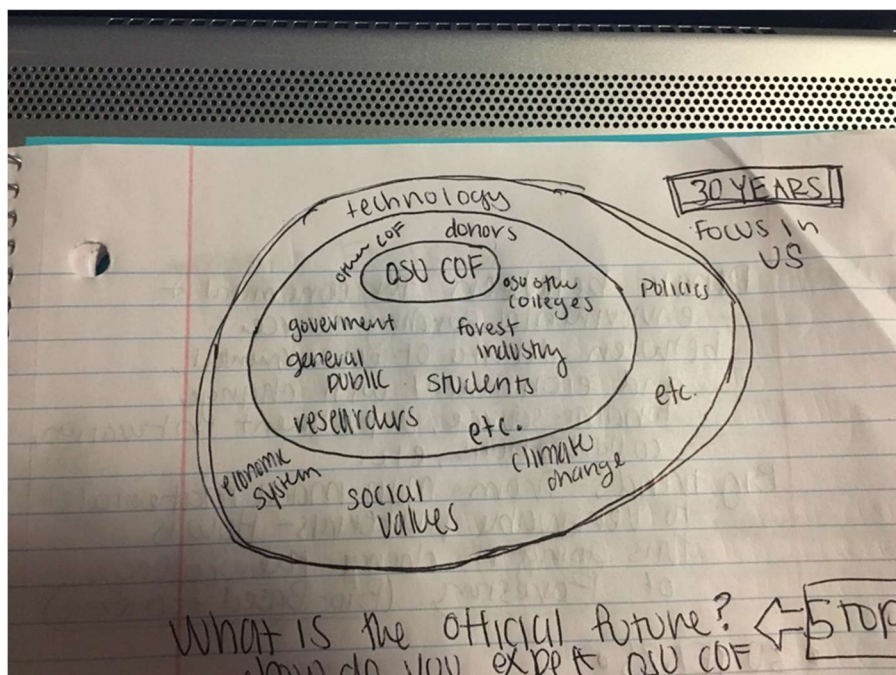 technology
30 YEARS
FOCUS in
US
other COF
donors
OSU COF
OSU other
colleges
policies
goverment
forest
industry
general
public
students
researchers
etc.
etc.
economic
system
climate
change
social
values
What is the official future?
Stop
how do you expect OSU COF